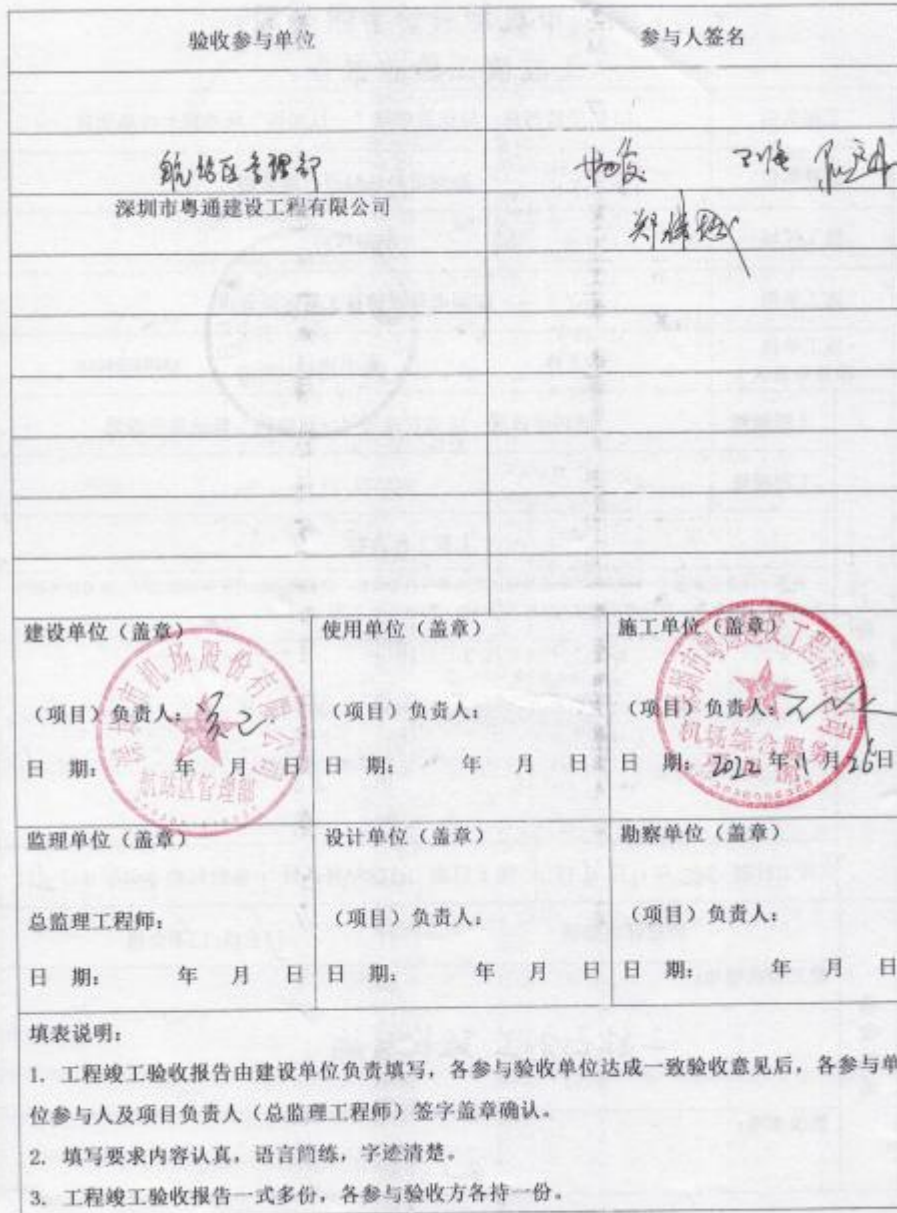 验收参与单位
参与人签名
航站区管理部
深圳市粤通建设工程有限公司
建设单位（盖章）
（项目）负责人：
日 期： 年 月 日
深圳市机场股份有限公司
航站区管理部
使用单位（盖章）
（项目）负责人：
日 期： 年 月 日
施工单位（盖章）
（项目）负责人：
日 期：2022年11月26日
深圳市粤通建设工程有限公司
监理单位（盖章）
总监理工程师：
日 期： 年 月 日
设计单位（盖章）
（项目）负责人：
日 期： 年 月 日
勘察单位（盖章）
（项目）负责人：
日 期： 年 月 日
填表说明：
1. 工程竣工验收报告由建设单位负责填写，各参与验收单位达成一致验收意见后，各参与单
位参与人及项目负责人（总监理工程师）签字盖章确认。
2. 填写要求内容认真，语言简练，字迹清楚。
3. 工程竣工验收报告一式多份，各参与验收方各持一份。